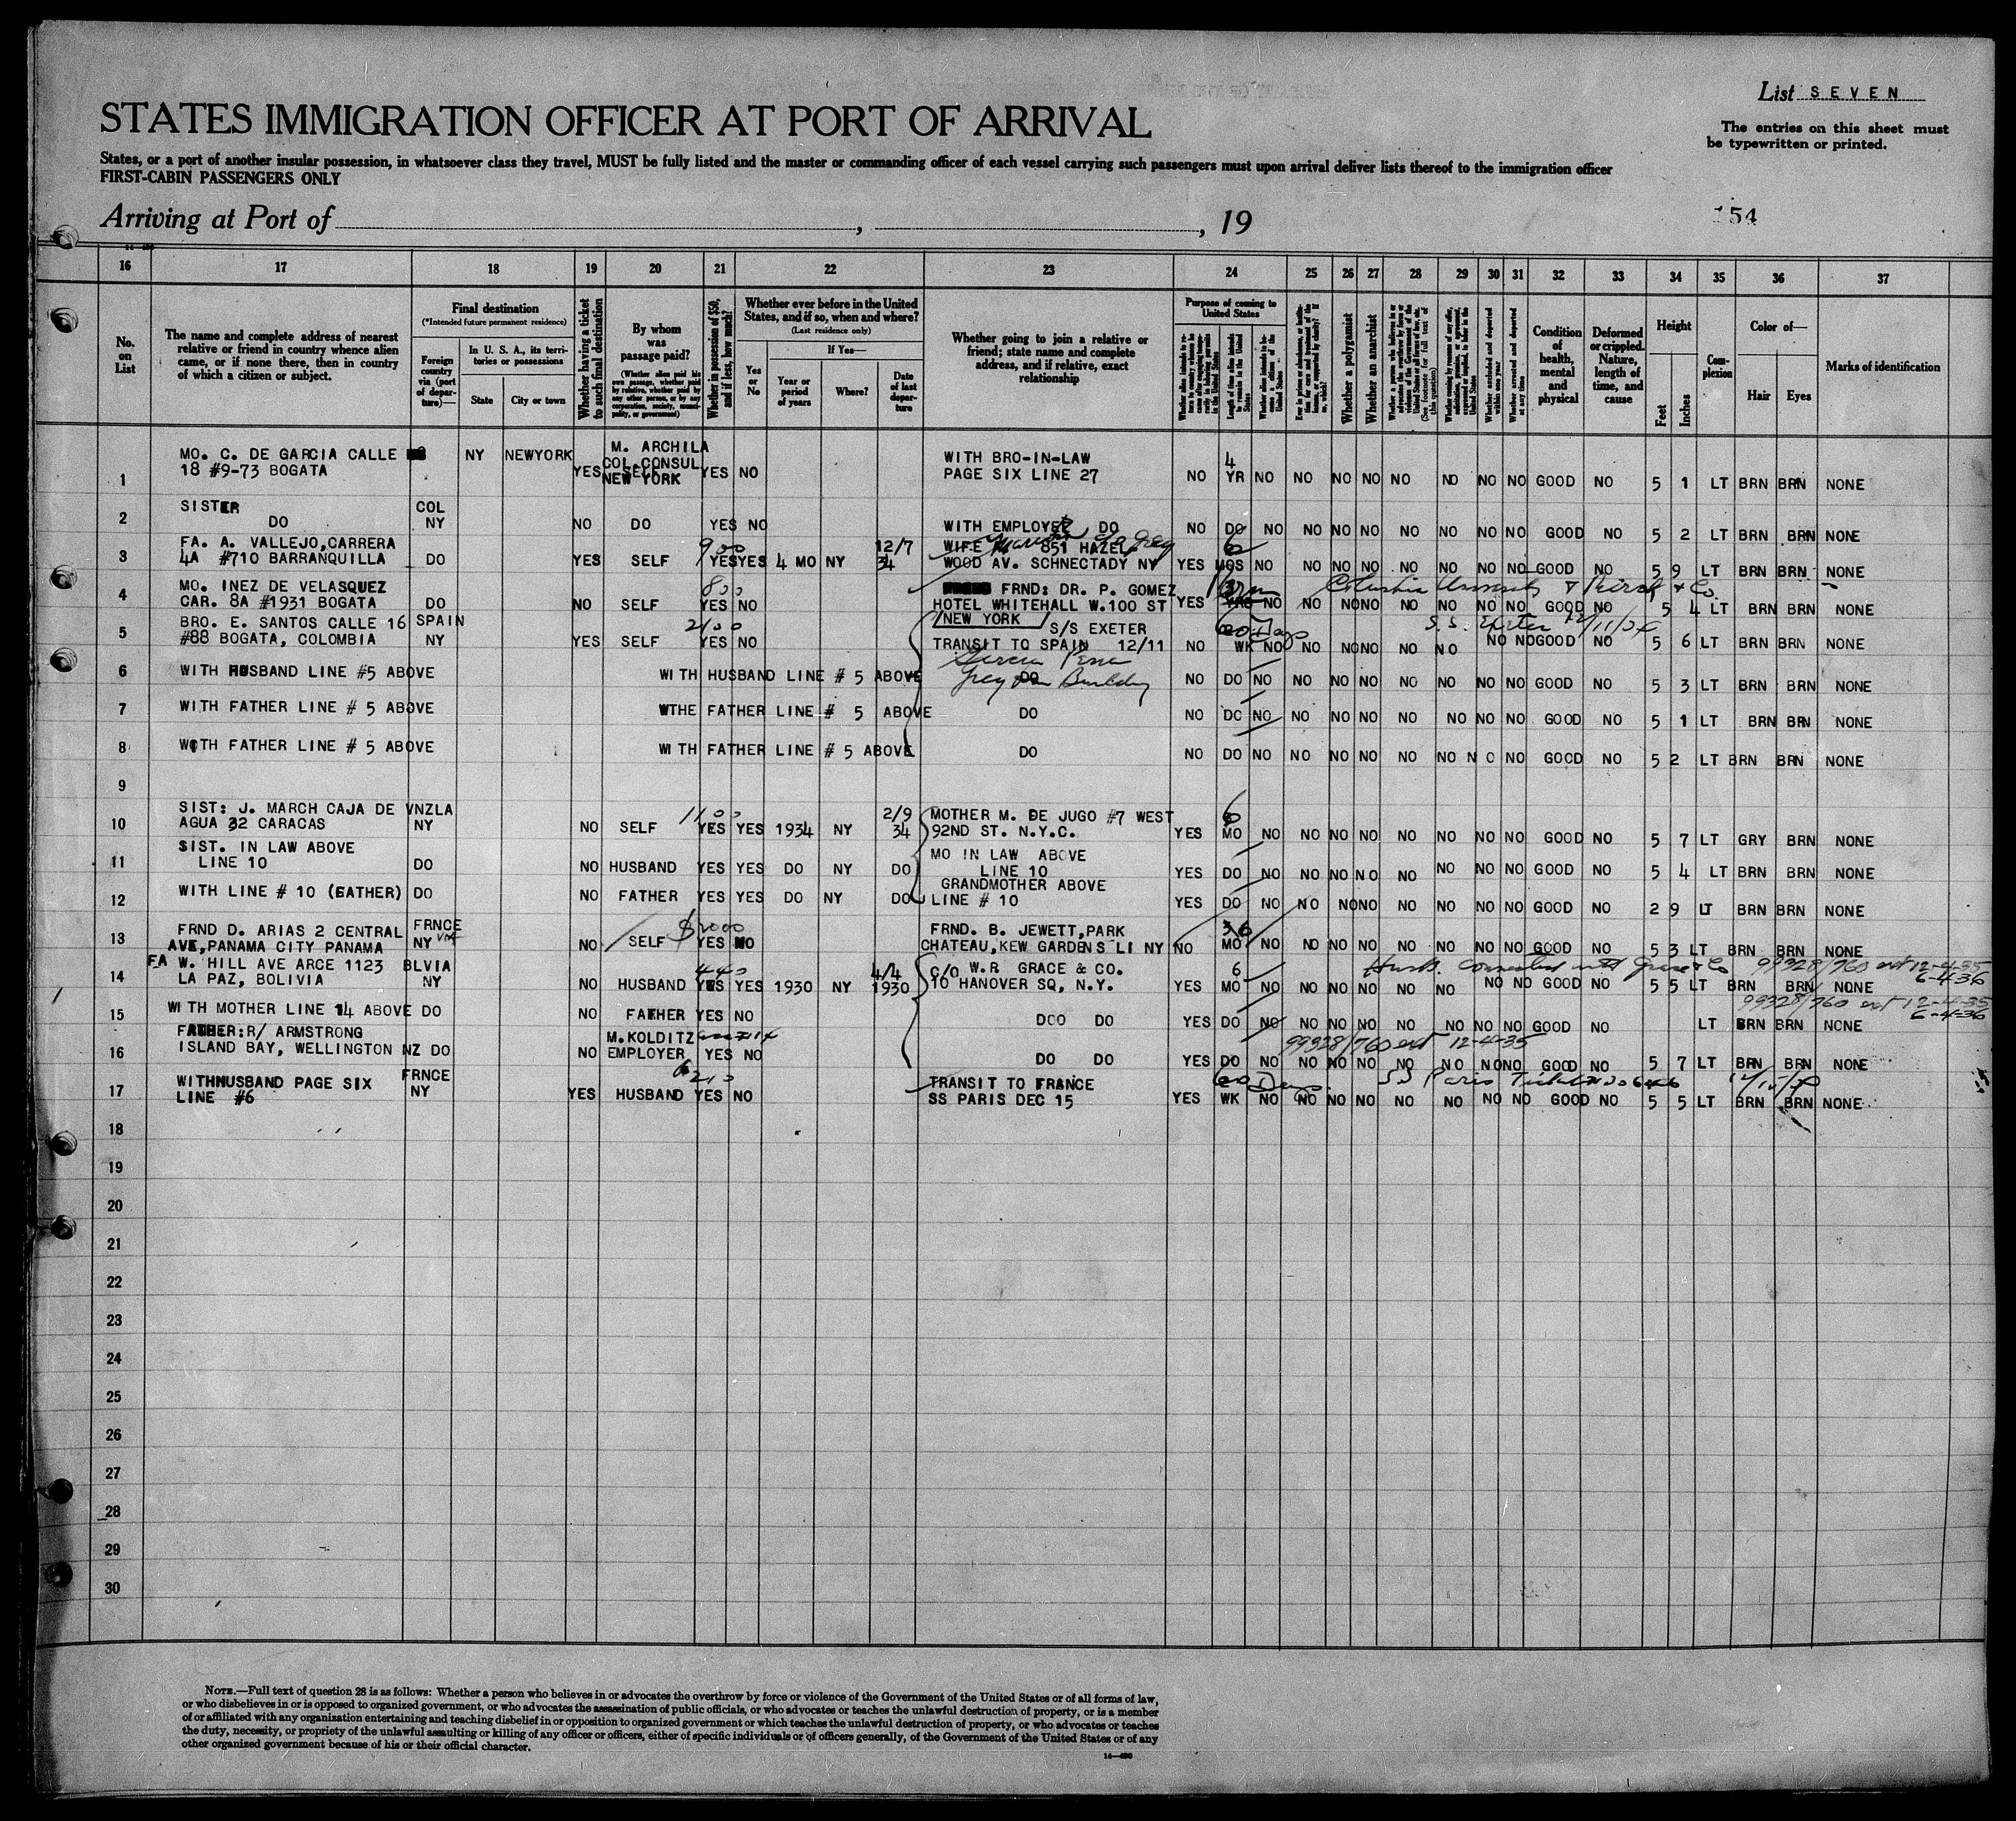 List SEVEN
STATES IMMIGRATION OFFICER AT PORT OF ARRIVAL
The entries on this sheet must
be typewritten or printed.
States, or a port of another insular possession, in whatsoever class they travel, MUST be fully listed and the master or commanding officer of each vessel carrying such passengers must upon arrival deliver lists thereof to the immigration officer
FIRST-CABIN PASSENGERS ONLY
Arriving at Port of , , 19
154
16 17 18 19 20 21 22 23 24 25 26 27 28 29 30 31 32 33 34 35 36 37
No. on List
The name and complete address of nearest relative or friend in country whence alien came, or if none there, then in country of which a citizen or subject.
Final destination
(*Intended future permanent residence)
Foreign country via (port of departure)—
In U. S. A., its territories or possessions
State
City or town
Whether having a ticket to such final destination
By whom was passage paid?
(Whether alien paid his own passage, whether paid by relative, whether paid by any other person, or by any corporation, society, municipality, or government)
Whether in possession of $50, and if less, how much?
Whether ever before in the United States, and if so, when and where?
(Last residence only)
Yes or No
If Yes—
Year or period of years
Where?
Date of last departure
Whether going to join a relative or friend; state name and complete address, and if relative, exact relationship
Purpose of coming to United States
Length of time alien intends to remain in the United States
Whether a polygamist
Whether an anarchist
Condition of health, mental and physical
Deformed or crippled. Nature, length of time, and cause
Height
Feet
Inches
Complexion
Color of—
Hair
Eyes
Marks of identification
1 MO. C. DE GARCIA CALLE NY NEWYORK M. ARCHILA WITH BRO-IN-LAW 4
18 #9-73 BOGATA YES COL CONSUL SELF NEW YORK YES NO PAGE SIX LINE 27 NO YR NO NO NO NO NO NO NO NO GOOD NO 5 1 LT BRN BRN NONE
2 SISTER COL
DO NY NO DO YES NO WITH EMPLOYER DO NO DO NO NO NO NO NO NO NO NO GOOD NO 5 2 LT BRN BRN NONE
3 FA. A. VALLEJO,CARRERA 900 12/7 WIFE 851 HAZEL 6
4A #710 BARRANQUILLA DO YES SELF YES YES 4 MO NY 34 WOOD AV. SCHNECTADY NY YES MOS NO NO NO NO NO NO NO NO GOOD NO 5 9 LT BRN BRN NONE
4 MO. INEZ DE VELASQUEZ 800 FRND: DR. P. GOMEZ Columbia University
CAR. 8A #1931 BOGATA DO NO SELF YES NO HOTEL WHITEHALL W.100 ST YES NO NO NO NO NO NO NO NO GOOD NO 5 4 LT BRN BRN NONE
NEW YORK
5 BRO. E. SANTOS CALLE 16 SPAIN 2100 S/S EXETER 60 Days S.S. Exeter 12/11/34
#88 BOGATA, COLOMBIA NY YES SELF YES NO TRANSIT TO SPAIN 12/11 NO WK NO NO NO NO NO NO NO NO GOOD NO 5 6 LT BRN BRN NONE
6 WITH HUSBAND LINE #5 ABOVE WITH HUSBAND LINE # 5 ABOVE DO NO DO NO NO NO NO NO NO NO NO GOOD NO 5 3 LT BRN BRN NONE
Building
7 WITH FATHER LINE # 5 ABOVE WTHE FATHER LINE # 5 ABOVE DO NO DO NO NO NO NO NO NO NO NO GOOD NO 5 1 LT BRN BRN NONE
8 WITH FATHER LINE # 5 ABOVE WITH FATHER LINE # 5 ABOVE DO NO DO NO NO NO NO NO NO NO NO GOOD NO 5 2 LT BRN BRN NONE
9
10 SIST: J. MARCH CAJA DE VNZLA 1100 2/9 MOTHER M. DE JUGO #7 WEST 6
AGUA 32 CARACAS NY NO SELF YES YES 1934 NY 34 92ND ST. N.Y.C. YES MO NO NO NO NO NO NO NO NO GOOD NO 5 7 LT GRY BRN NONE
11 SIST. IN LAW ABOVE MO IN LAW ABOVE
LINE 10 DO NO HUSBAND YES YES DO NY DO LINE 10 YES DO NO NO NO NO NO NO NO NO GOOD NO 5 4 LT BRN BRN NONE
12 WITH LINE # 10 (FATHER) DO NO FATHER YES YES DO NY DO GRANDMOTHER ABOVE
LINE # 10 YES DO NO NO NO NO NO NO NO NO GOOD NO 2 9 LT BRN BRN NONE
13 FRND D. ARIAS 2 CENTRAL FRNCE $2000 FRND. B. JEWETT,PARK 36
AVE,PANAMA CITY PANAMA NY NO SELF YES NO CHATEAU,KEW GARDENS LI NY NO MO NO NO NO NO NO NO NO NO GOOD NO 5 3 LT BRN BRN NONE
14 FA W. HILL AVE ARCE 1123 BLVIA 440 4/4 C/O W.R GRACE & CO. 6 Husb. connected with Grace & Co 99328/760 ext 12-4-35
LA PAZ, BOLIVIA NY NO HUSBAND YES YES 1930 NY 1930 10 HANOVER SQ, N.Y. YES MO NO NO NO NO NO NO NO NO GOOD NO 5 5 LT BRN BRN NONE 6-4-36
15 WITH MOTHER LINE 14 ABOVE DO NO FATHER YES NO DOO DO YES DO NO NO NO NO NO NO NO NO GOOD NO LT BRN BRN NONE 99328/760 ext 12-4-35
6-4-36
16 FATHER:R/ ARMSTRONG M.KOLDITZ 99328/760 ext 12-4-35
ISLAND BAY, WELLINGTON NZ DO NO EMPLOYER YES NO DO DO YES DO NO NO NO NO NO NO NO NO GOOD NO 5 7 LT BRN BRN NONE
17 WITHHUSBAND PAGE SIX FRNCE 210 TRANSIT TO FRANCE 60 Days SS Paris
LINE #6 NY YES HUSBAND YES NO SS PARIS DEC 15 YES WK NO NO NO NO NO NO NO NO GOOD NO 5 5 LT BRN BRN NONE
18
19
20
21
22
23
24
25
26
27
28
29
30
NOTE.—Full text of question 28 is as follows: Whether a person who believes in or advocates the overthrow by force or violence of the Government of the United States or of all forms of law,
or who disbelieves in or is opposed to organized government, or who advocates the assassination of public officials, or who advocates or teaches the unlawful destruction of property, or is a member
of or affiliated with any organization entertaining and teaching disbelief in or opposition to organized government or which teaches the unlawful destruction of property, or who advocates or teaches
the duty, necessity, or propriety of the unlawful assaulting or killing of any officer or officers, either of specific individuals or of officers generally, of the Government of the United States or of any
other organized government because of his or their official character.